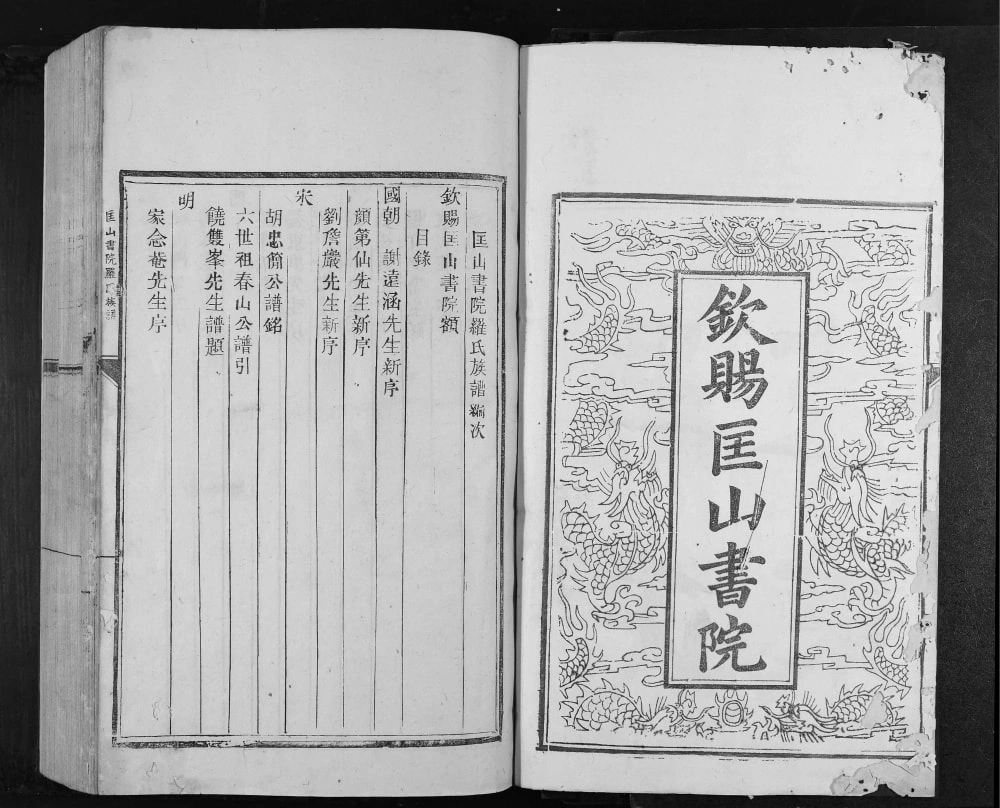 欽賜匡山書院
匡山書院羅氏族譜編次
欽賜匡山書院額
目錄
國朝 謝遠涵先生新序
顏第仙先生新序
劉詹巖先生新序
宋
胡忠簡公譜銘
六世祖春山公譜引
饒雙峯先生譜題
明
家念菴先生序
匡山書院羅氏族譜